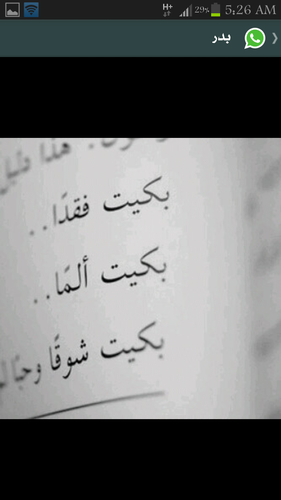 H+ 29% 5:26 AM
بدر
هذا
بكيت فقدًا..
بكيت ألمًا..
بكيت شوقًا